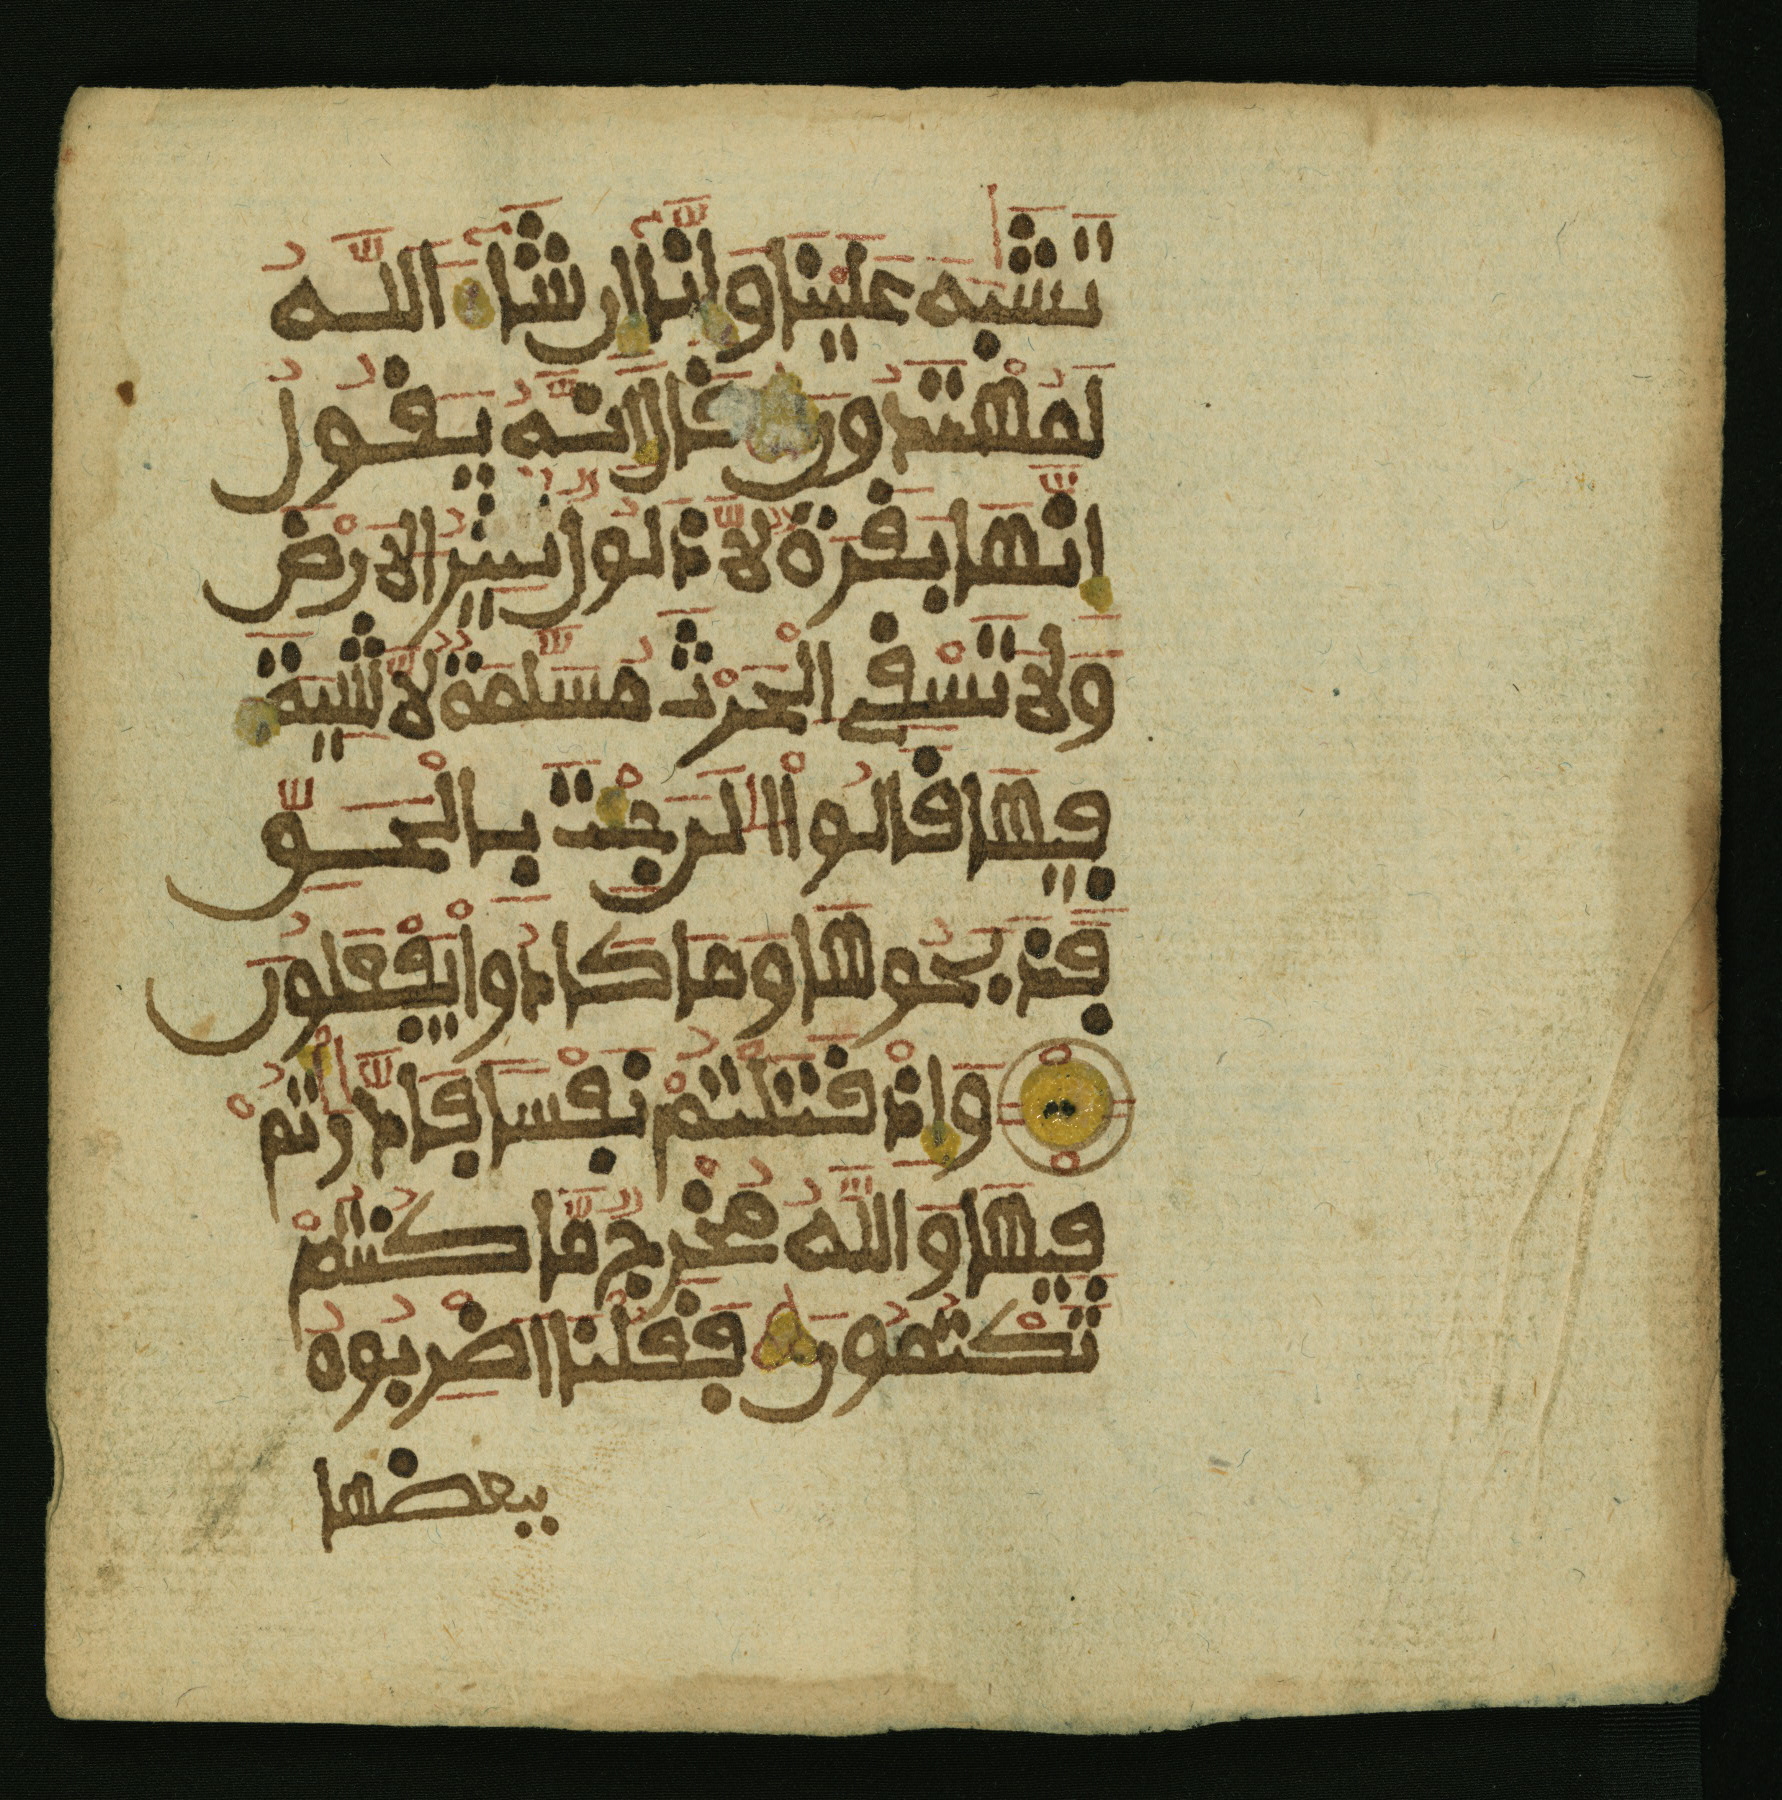 تَشَٰبَهَ عَلَيْنَا وَإِنَّا إِن شَاءَ اللَّهُ
لَمُهْتَدُونَ قَالَ إِنَّهُ يَقُولُ
إِنَّهَا بَقَرَةٌ لَّا ذَلُولٌ تُثِيرُ الْأَرْضَ
وَلَا تَسْقِي الْحَرْثَ مُسَلَّمَةٌ لَّا شِيَةَ
فِيهَا قَالُوا الْـَٰنَ جِئْتَ بِالْحَقِّ
فَذَبَحُوهَا وَمَا كَادُوا يَفْعَلُونَ
وَإِذْ قَتَلْتُمْ نَفْسًا فَادَّٰرَأْتُمْ
فِيهَا وَاللَّهُ مُخْرِجٌ مَّا كُنْتُمْ
تَكْتُمُونَ فَقُلْنَا اضْرِبُوهُ
ببعضها